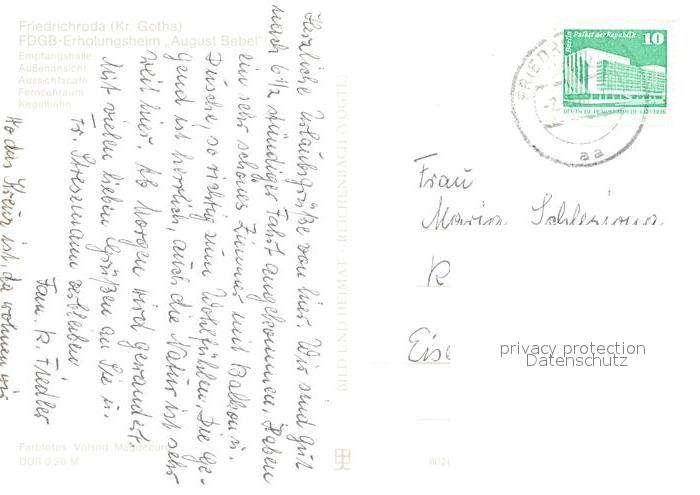 Friedrichroda (Kr. Gotha)
FDGB-Erholungsheim „August Bebel"
Empfangshalle
Außenansicht
Aussichtscafé
Fernsehraum
Kegelbahn
Herzliche Urlaubsgrüße von hier. Wir sind gut
nach 6½ stündiger Fahrt angekommen. Haben
ein sehr schönes Zimmer mit Balkon u.
Dusche, so richtig zum Wohlfühlen. Die Ge-
gend ist herrlich, auch die Natur ist sehr
weit hier. Ab Morgen wird gewandert.
Mit vielen lieben Grüßen an Sie u.
Fr. Stresemann verbleiben
Fam. K. Friedler
Wo das Kreuz ist, da wohnen wir
Farbfotos: Voland, Magdeburg
DDR 0,20 M
BILD UND HEIMAT · REICHENBACH (VOGTL)
Berlin Palast der Republik 10
DEUTSCHE DEMOKRATISCHE REPUBLIK
FRIEDR
aa
Frau
Maria
K
Eise
privacy protection
Datenschutz